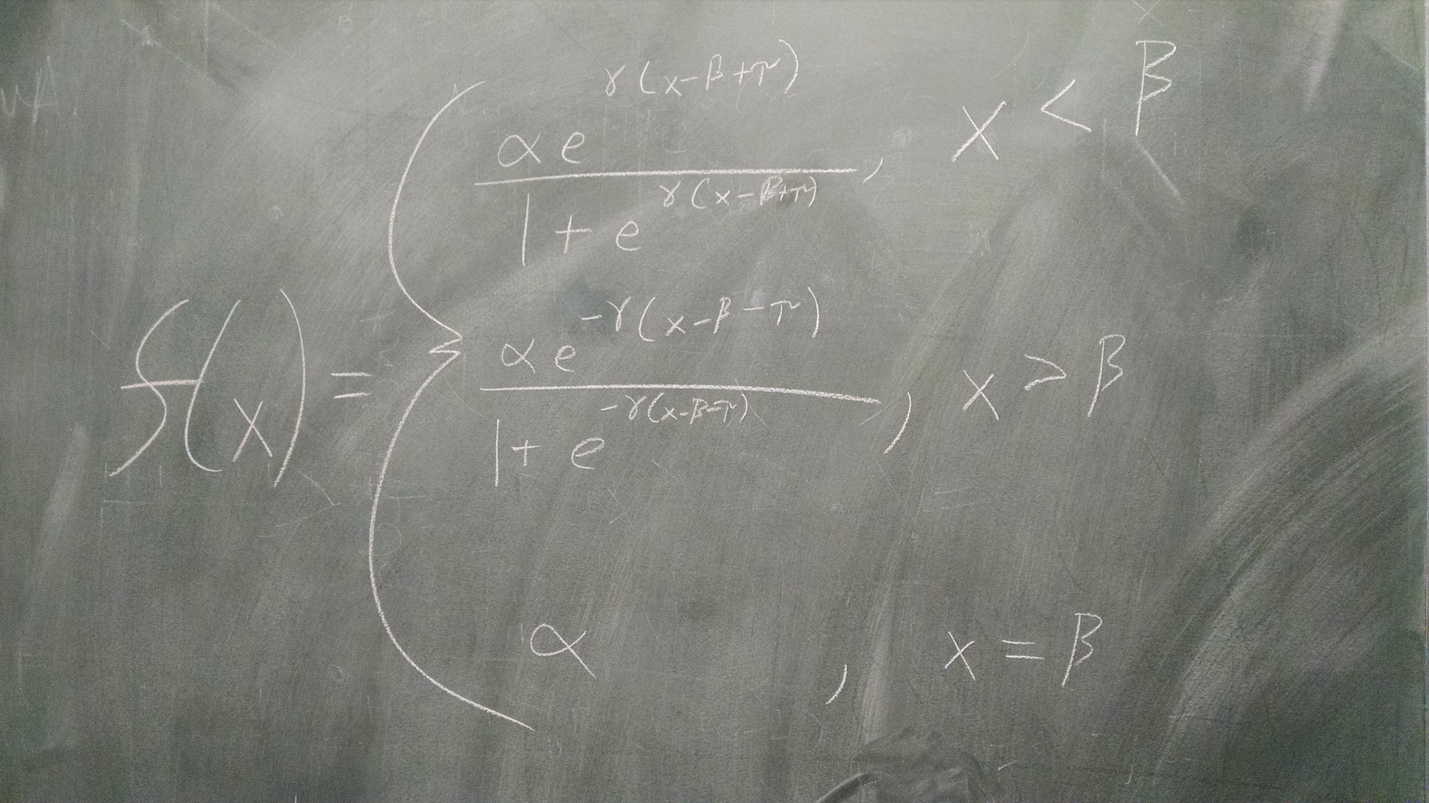 f(x) = { αe^{γ(x-β+π)} / (1+e^{γ(x-β+π)}), x < β
αe^{-γ(x-β-π)} / (1+e^{-γ(x-β-π)}), x > β
α, x = β